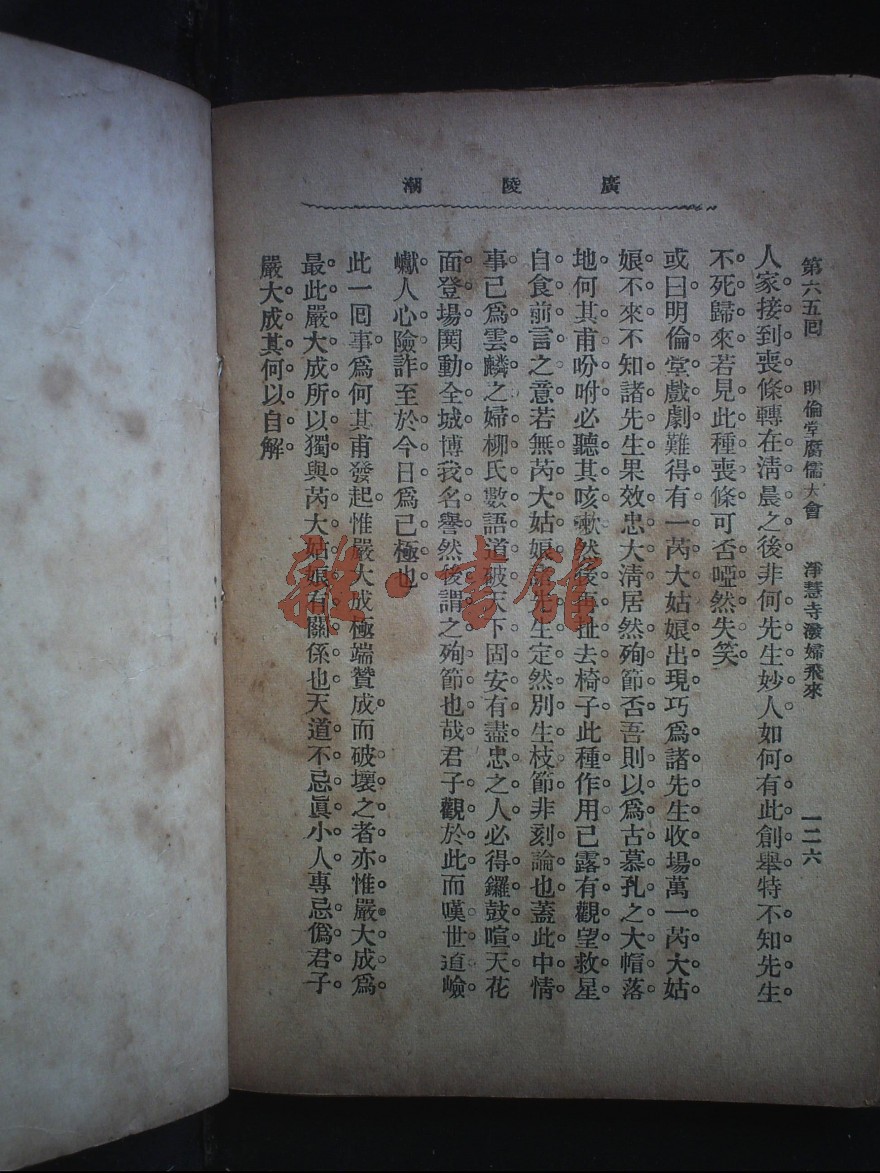 廣陵潮
第六五囘 明倫堂腐儒大會 淨慧寺潑婦飛來 一二六
人家接到喪條轉在淸晨之後非何先生妙人如何有此創舉特不知先生
不死歸來若見此種喪條可否啞然失笑
或曰明倫堂戲劇難得有一芮大姑娘出現巧爲諸先生收場萬一芮大姑
娘不來不知諸先生果效忠大淸居然殉節否吾則以爲古慕孔之大帽落
地何其甫吩咐必聽其咳嗽然後再扯去椅子此種作用已露有觀望救星
自食前言之意若無芮大姑娘諸先生定然別生枝節非刻論也蓋此中情
事已爲雲麟之婦柳氏數語道破天下固安有盡忠之人必得鑼鼓喧天花
面登場閧動全城博我名譽然後謂之殉節也哉君子觀於此而嘆世道嶮
巇人心險詐至於今日爲已極也
此一囘事爲何其甫發起惟嚴大成極端贊成而破壞之者亦惟嚴大成爲
最此嚴大成所以獨與芮大姑娘有關係也天道不忌眞小人專忌僞君子
嚴大成其何以自解
雜·書館